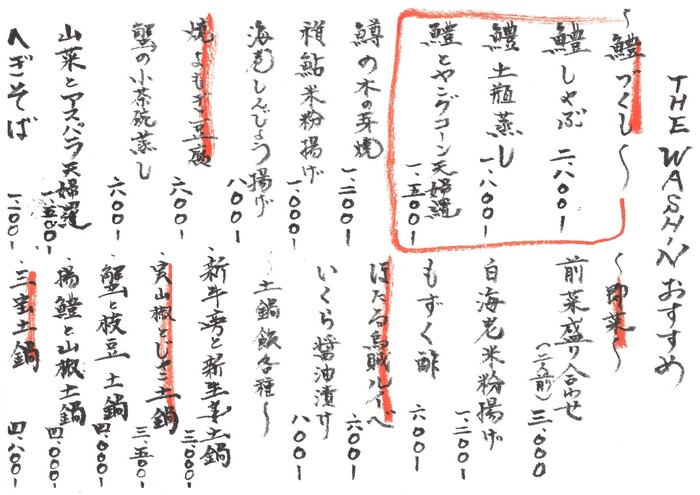 THE WASHINおすすめ
～鱧づくし～
鱧しゃぶ 二、八〇〇-
鱧土瓶蒸し 一、八〇〇-
鱧とヤングコーン天婦羅 一、五〇〇-
鱒の木の芽焼 一、二〇〇-
稚鮎米粉揚げ 一、〇〇〇-
海老しんじょう揚げ 八〇〇-
焼よもぎ豆腐 六〇〇-
蟹の小茶碗蒸し 六〇〇-
山菜とアスパラ天婦羅 一、五〇〇-
へぎそば 一、二〇〇-
～野菜～
前菜盛り合わせ(二名前) 三、〇〇〇
白海老米粉揚げ 一、二〇〇-
もずく酢 六〇〇-
ほたる烏賊ルイベ 六〇〇-
いくら醤油漬け 八〇〇-
～土鍋飯各種～
・新牛蒡と新生姜土鍋 三、〇〇〇-
・実山椒とじゃこ土鍋 三、五〇〇-
・蟹と枝豆土鍋 四、〇〇〇-
・鱧と山椒土鍋 四、〇〇〇-
・三宝土鍋 四、八〇〇-